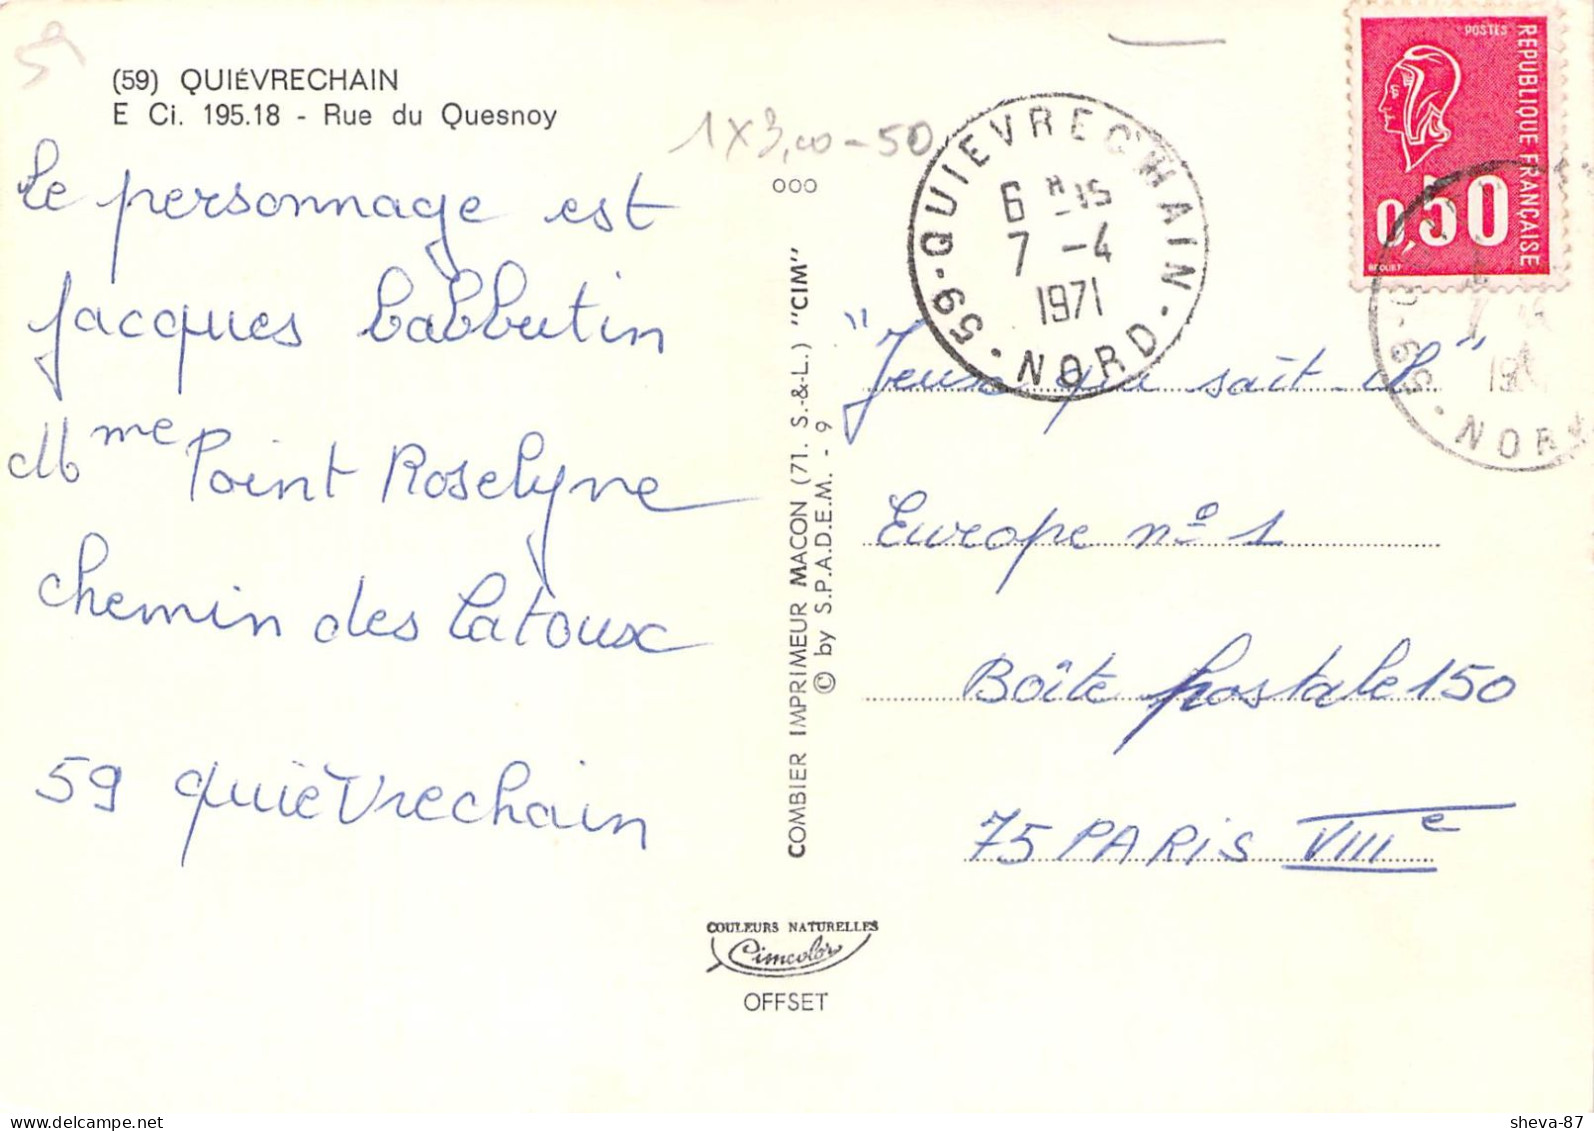 59
(59) QUIÉVRECHAIN
E Ci. 195.18 - Rue du Quesnoy
1 X 3,00 - 50
le personnage est
jacques babbutin
Mme Point Roselyne
chemin des Latoux
59 quièvrechain
000
COMBIER IMPRIMEUR MACON (71. S.-&-L.) "CIM"
© by S.P.A.D.E.M. - 9
COULEURS NATURELLES
Cimcolor
OFFSET
59-QUIEVRECHAIN-NORD
6 H 15
7 -4
1971
POSTES
REPUBLIQUE FRANÇAISE
0,50
BEQUET
59- NORD
19
"Jeux qui sait-il"
Europe nº 1
Boîte postale 150
75 PARIS VIIIe
sheva-87